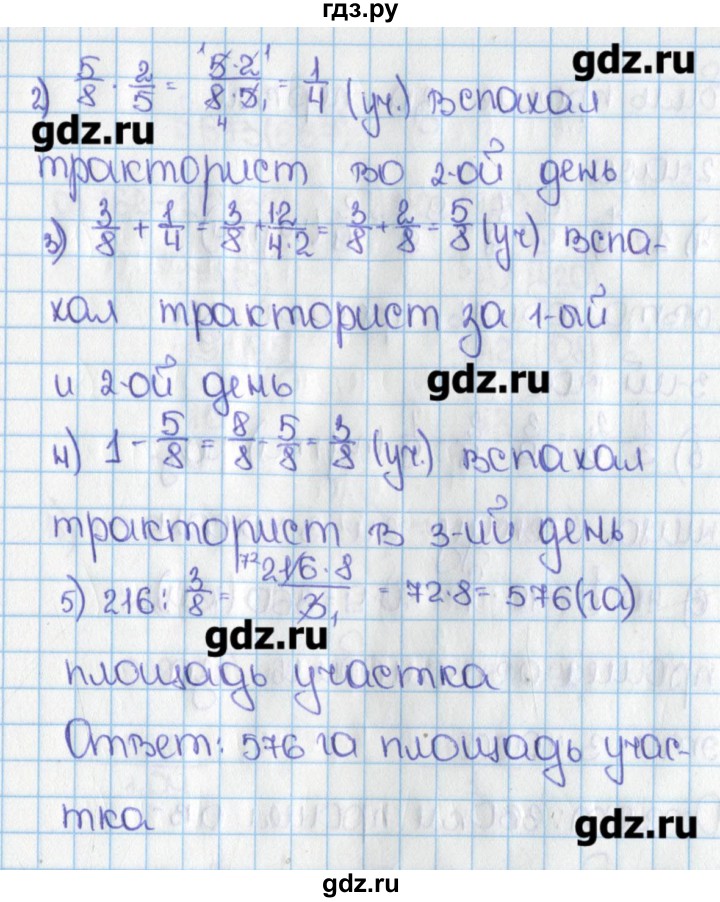 гдз.ру
gdz.ru
2) 5/8 · 2/5 = 5·2/8·5 = 1/4 (уч.) вспахал
gdz.ru
тракторист во 2-ой день
3) 3/8 + 1/4 = 3/8 + 12/4·2 = 3/8 + 2/8 = 5/8 (уч) вспа-
хал тракторист за 1-ый
и 2-ой день
gdz.ru
4) 1 - 5/8 = 8/8 - 5/8 = 3/8 (уч.) вспахал
тракторист в 3-ий день
5) 216 : 3/8 = 216·8/3 = 72·8 = 576 (га)
gdz.ru
площадь участка
Ответ: 576 га площадь учас-
тка
gdz.ru
gdz.ru